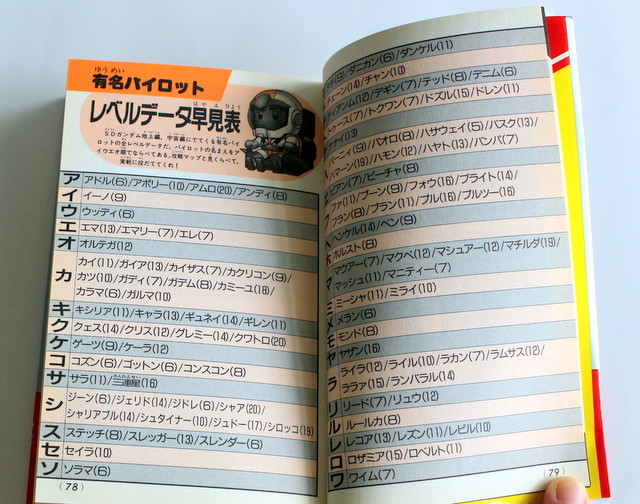 ゆうめい
有名パイロット
はやみひょう
レベルデータ早見表
SDガンダム地上編、宇宙編にでてくる有名パイ
ロットの全レベルデータだ。パイロットの名まえをア
イウエオ順でならべてある。攻略マップと見くらべて、
実戦に役だててくれ!
ア アドル(6)/アポリー(10)/アムロ(20)/アンディ(8)
イ イーノ(9)
ウ ウッディ(6)
エ エマ(13)/エマリー(7)/エレ(7)
オ オルテガ(12)
カ カイ(11)/ガイア(13)/カイザス(7)/カクリコン(9)/
カツ(10)/ガディ(7)/ガデム(8)/カミーユ(18)/
カラマ(6)/ガルマ(10)
キ キシリア(11)/キャラ(13)/ギュネイ(14)/ギレン(11)
ク クェス(14)/クリス(12)/グレミー(14)/クワトロ(20)
ケ ゲーツ(9)/ケーラ(12)
コ コズン(6)/ゴットン(6)/コンスコン(8)
サ サラ(11)/三連星(16)
シ ジーン(6)/ジェリド(14)/ジドレ(6)/シャア(20)/
シャリアブル(14)/シュタイナー(10)/ジュドー(17)/シロッコ(19)
ス ステッチ(8)/スレッガー(13)/スレンダー(6)
セ セイラ(10)
ソ ソラマ(6)
(78)
(9)/ダニカン(6)/ダンケル(11)
チェーン(14)/チャン(10)
ディアンム(12)/デギン(7)/テッド(8)/デニム(6)
トゥース(7)/トクワン(7)/ドズル(15)/ドレン(11)
ナナイ(13)
バーニィ(9)/パオロ(8)/ハサウェイ(5)/バスク(13)/
ハマーン(19)/ハモン(12)/ハヤト(13)/バンバ(7)
ピアン(7)/ビーチャ(8)
ファ(11)/ブーン(9)/フォウ(16)/ブライト(14)/
フラン(8)/ブラン(11)/プル(16)/プルツー(16)
ヘンケル(14)/ベン(9)
ホ ホルスト(8)
マ マウアー(7)/マクベ(12)/マシュアー(12)/マチルダ(19)/
マッシュ(11)/マニティー(7)
ミ ミーシャ(11)/ミライ(10)
メ メラン(6)
モ モンド(8)
ヤ ヤザン(16)
ラ ライラ(12)/ライル(10)/ラカン(7)/ラムサス(12)/
ララァ(15)/ランバラル(14)
リ リード(7)/リュウ(12)
ル ルールカ(8)
レ レコア(13)/レズン(11)/レビル(10)
ロ ロザミア(15)/ロベルト(11)
ワ ワイム(7)
(79)